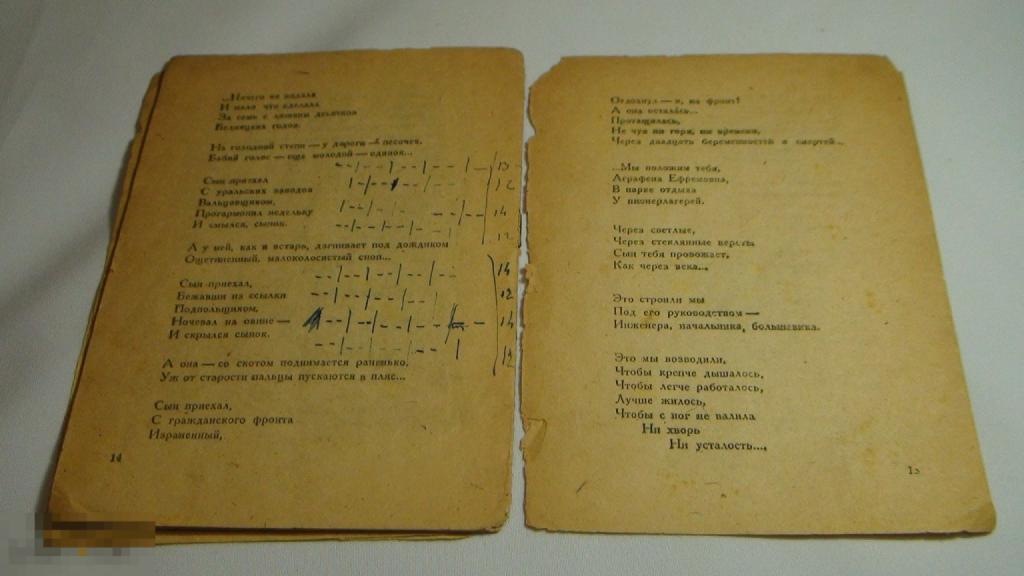 ...Ничего не видала
И мало что сделала
За семь с лишним десятков
Бедняцких годов.
На голодной степи — у дороги — песочек.
Бабий голос — еще молодой — одинок...
13
Сын приехал
12
С уральских заводов
Вальцовщиком,
Прогармонил недельку
14
И смылся, сынок.
12
А у ней, как и встарь, дягивает под дождиком
Ощетиненный, малоколосистый сноп...
14
Сын приехал,
Бежавши из ссылки
12
Подпольщиком,
Ночевал на овине —
14
И скрылся сынок.
12
А она — со скотом поднимается раненько,
Уж от старости пальцы пускаются в пляс...
Сын приехал,
С гражданского фронта
Израненный,
14
Отдохнул — и, на фронт!
А она осталась...
Протащилась,
Не чуя ни горя, ни времени,
Через двадцать беременностей и смертей...
...Мы положим тебя,
Аграфена Ефремовна,
В парке отдыха
У пионерлагерей.
Через светлые,
Через стеклянные версты
Сын тебя провожает,
Как через века...
Это строили мы
Под его руководством —
Инженера, начальника, большевика.
Это мы возводили,
Чтобы крепче дышалось,
Чтобы легче работалось,
Лучше жилось,
Чтобы с ног не валила
Ни хворь
Ни усталость...,
15